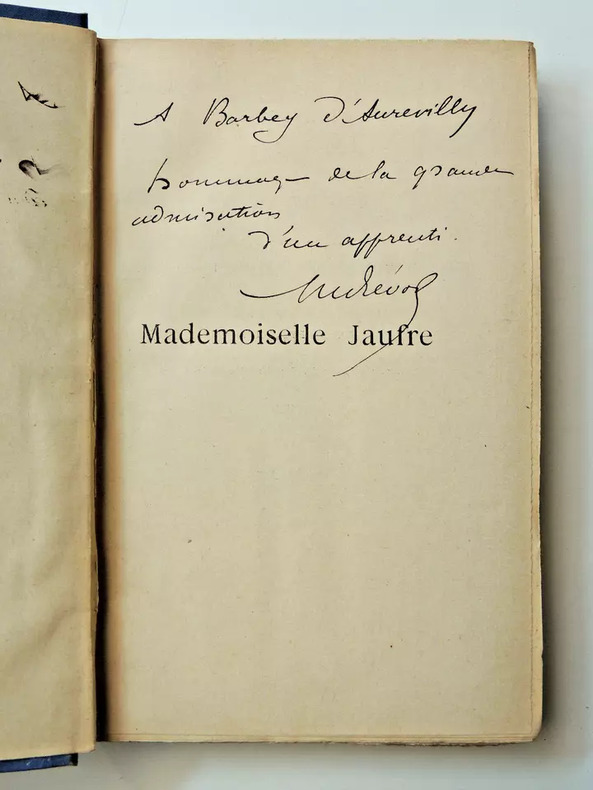 A Barbey d'Aurevilly
hommage de la grande
admiration
d'un apprenti.
MPrévost
Mademoiselle Jaufre